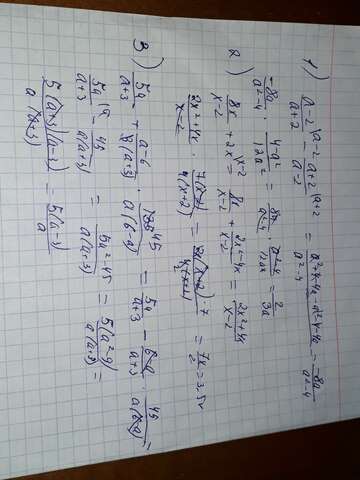 1) (a-2)/(a+2) - (a+2)/(a-2) = (a²+4-4a-a²-4-4a)/(a²-4) = -8a/(a²-4)
-8a/(a²-4) · (4-a²)/(12a²) = 8a/(a²-4) · (a²-4)/(12a²) = 2/(3a)
2) 8x/(x-2) + 2x = 8x/(x-2) + (2x²-4x)/(x-2) = (2x²+4x)/(x-2)
(2x²+4x)/(x-2) · 7(x-2)/(4(x+2)) = 2x(x+2)·7/(4(x+2)) = 7x/2 = 3.5x
3) 5a/(a+3) + (a-6)/(a+3) · 45/(a(6-a)) = 5a/(a+3) - (6-a)/(a+3) · 45/(a(6-a)) =
5a/(a+3) - 45/(a(a+3)) = (5a²-45)/(a(a+3)) = 5(a²-9)/(a(a+3)) =
5(a+3)(a-3)/(a(a+3)) = 5(a-3)/a